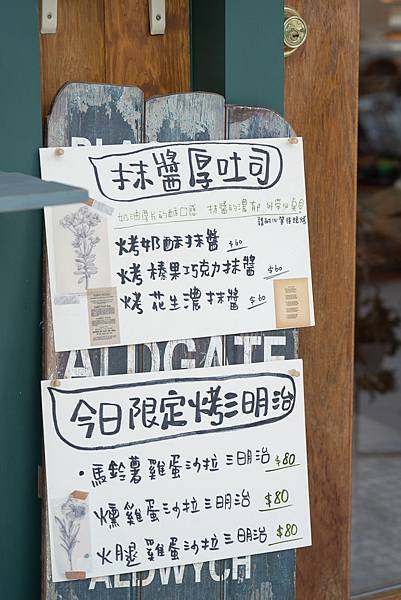 抹醬厚吐司
奶油厚片的酥口感 抹醬的濃郁
請耐心等待烘烤
烤奶酥抹醬 $60
烤榛果巧克力抹醬 $60
烤花生濃抹醬 $60
ALDGATE
今日限定烤三明治
・馬鈴薯雞蛋沙拉三明治 $80
燻雞蛋沙拉三明治 $80
火腿雞蛋沙拉三明治 $80
ALDWYCH